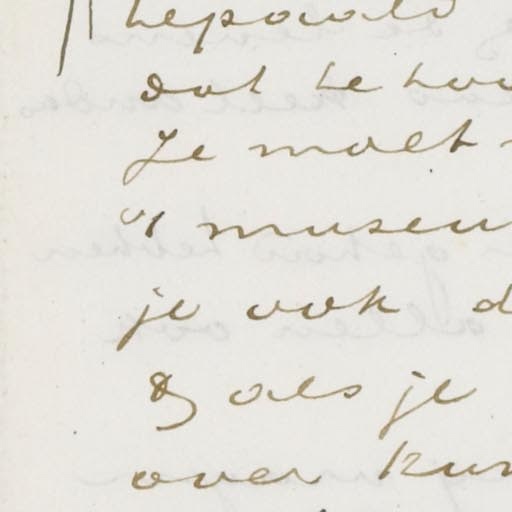 bepaald
dat be hou
Je moet
't museu
je ook d
& als je
over kun